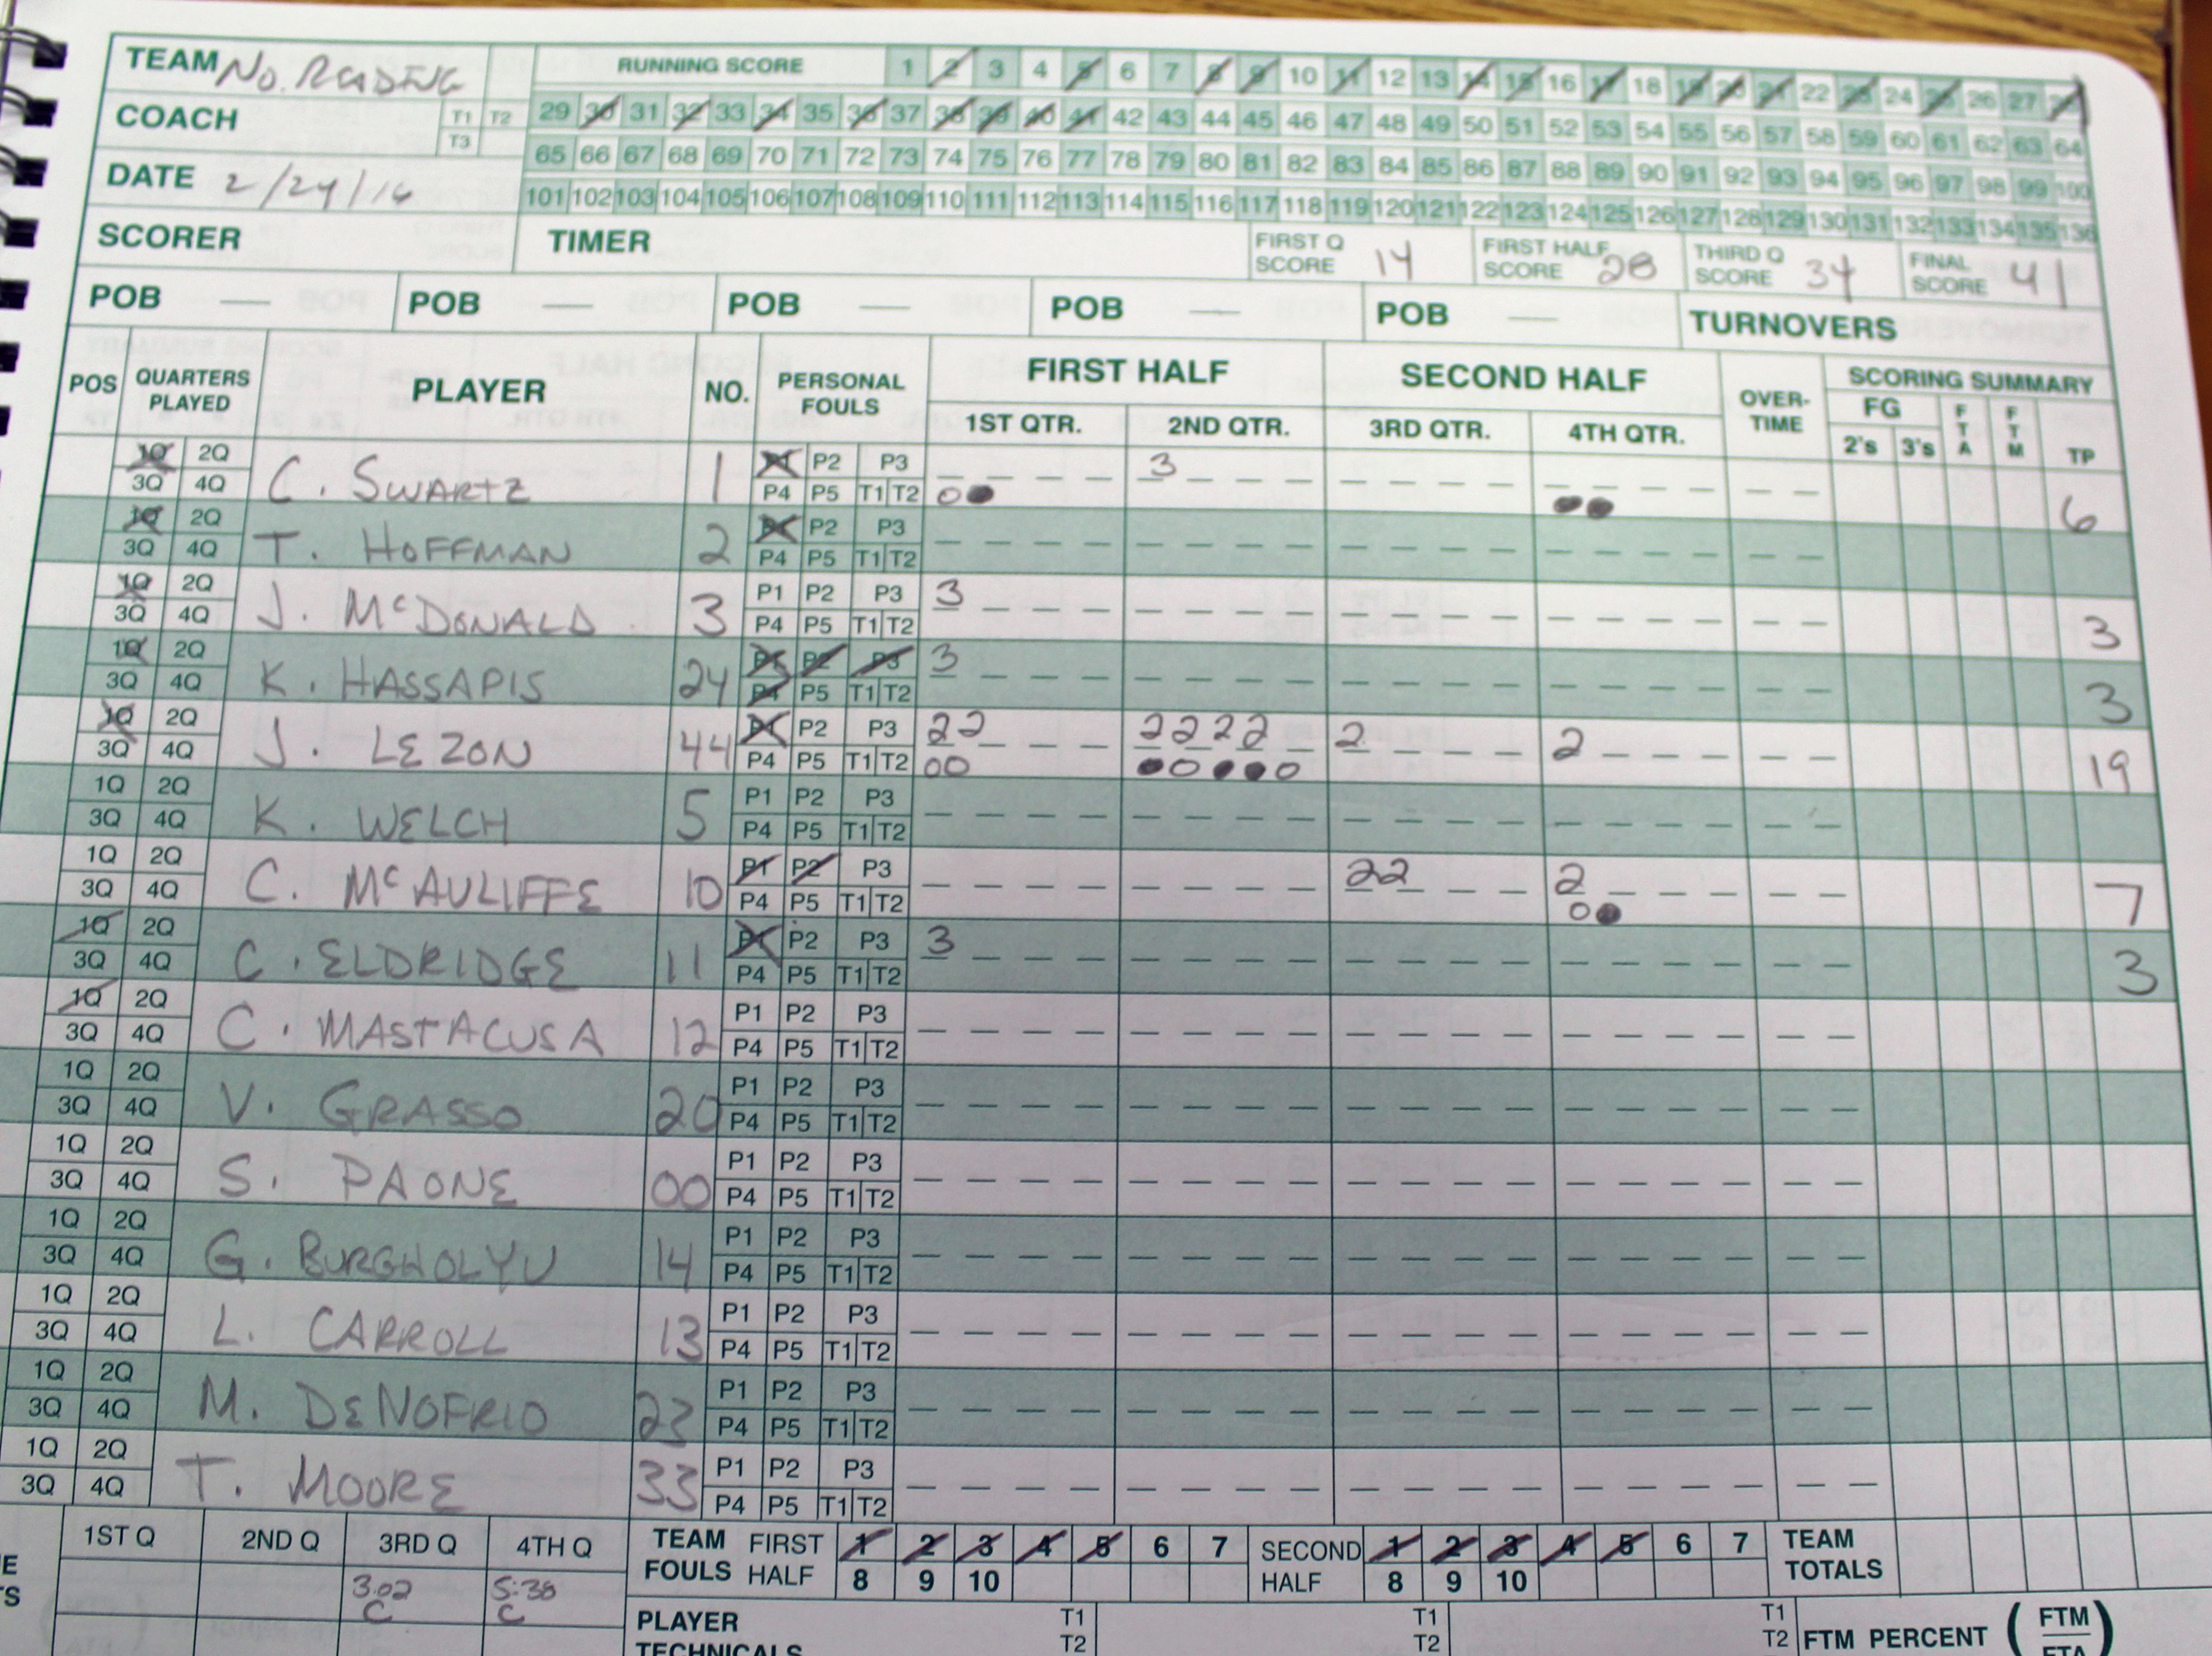 TEAM No. READING RUNNING SCORE 1 2 3 4 5 6 7 8 9 10 11 12 13 14 15 16 17 18 19 20 21 22 23 24 25 26 27 28
COACH T1 T2 T3 29 30 31 32 33 34 35 36 37 38 39 40 41 42 43 44 45 46 47 48 49 50 51 52 53 54 55 56 57 58 59 60 61 62 63 64
65 66 67 68 69 70 71 72 73 74 75 76 77 78 79 80 81 82 83 84 85 86 87 88 89 90 91 92 93 94 95 96 97 98 99 100
DATE 2/24/16 101 102 103 104 105 106 107 108 109 110 111 112 113 114 115 116 117 118 119 120 121 122 123 124 125 126 127 128 129 130 131 132 133 134 135 136
SCORER TIMER FIRST Q SCORE 14 FIRST HALF SCORE 28 THIRD Q SCORE 34 FINAL SCORE 41
POB — POB — POB — POB — POB — TURNOVERS
POS QUARTERS PLAYED PLAYER NO. PERSONAL FOULS FIRST HALF SECOND HALF OVER-TIME SCORING SUMMARY
1ST QTR. 2ND QTR. 3RD QTR. 4TH QTR. FG 2's 3's FTA FTM TP
1Q 2Q C. SWARTZ 1 P1 P2 P3 3
3Q 4Q P4 P5 T1 T2 0● ●● 6
1Q 2Q T. HOFFMAN 2 P1 P2 P3
3Q 4Q P4 P5 T1 T2
1Q 2Q J. McDONALD 3 P1 P2 P3 3
3Q 4Q P4 P5 T1 T2 3
1Q 2Q K. HASSAPIS 24 P1 P2 P3 3
3Q 4Q P4 P5 T1 T2 3
1Q 2Q J. LEZON 44 P1 P2 P3 22 2222 2 2
3Q 4Q P4 P5 T1 T2 00 ●0●●0 19
1Q 2Q K. WELCH 5 P1 P2 P3
3Q 4Q P4 P5 T1 T2
1Q 2Q C. McAULIFFE 10 P1 P2 P3 22 2
3Q 4Q P4 P5 T1 T2 0● 7
1Q 2Q C. ELDRIDGE 11 P1 P2 P3 3
3Q 4Q P4 P5 T1 T2 3
1Q 2Q C. MASTACUSA 12 P1 P2 P3
3Q 4Q P4 P5 T1 T2
1Q 2Q V. GRASSO 20 P1 P2 P3
3Q 4Q P4 P5 T1 T2
1Q 2Q S. PAONE 00 P1 P2 P3
3Q 4Q P4 P5 T1 T2
1Q 2Q G. 14 P1 P2 P3
3Q 4Q P4 P5 T1 T2
1Q 2Q L. CARROLL 13 P1 P2 P3
3Q 4Q P4 P5 T1 T2
1Q 2Q M. DENOFRIO 23 P1 P2 P3
3Q 4Q P4 P5 T1 T2
1Q 2Q T. MOORE 33 P1 P2 P3
3Q 4Q P4 P5 T1 T2
1ST Q 2ND Q 3RD Q 4TH Q TEAM FOULS FIRST HALF 1 2 3 4 5 6 7 SECOND HALF 1 2 3 4 5 6 7 TEAM TOTALS
3:02 C 5:38 C 8 9 10 8 9 10
PLAYER TECHNICALS T1 T2 T1 T2 T1 T2 FTM PERCENT (FTM FTA)